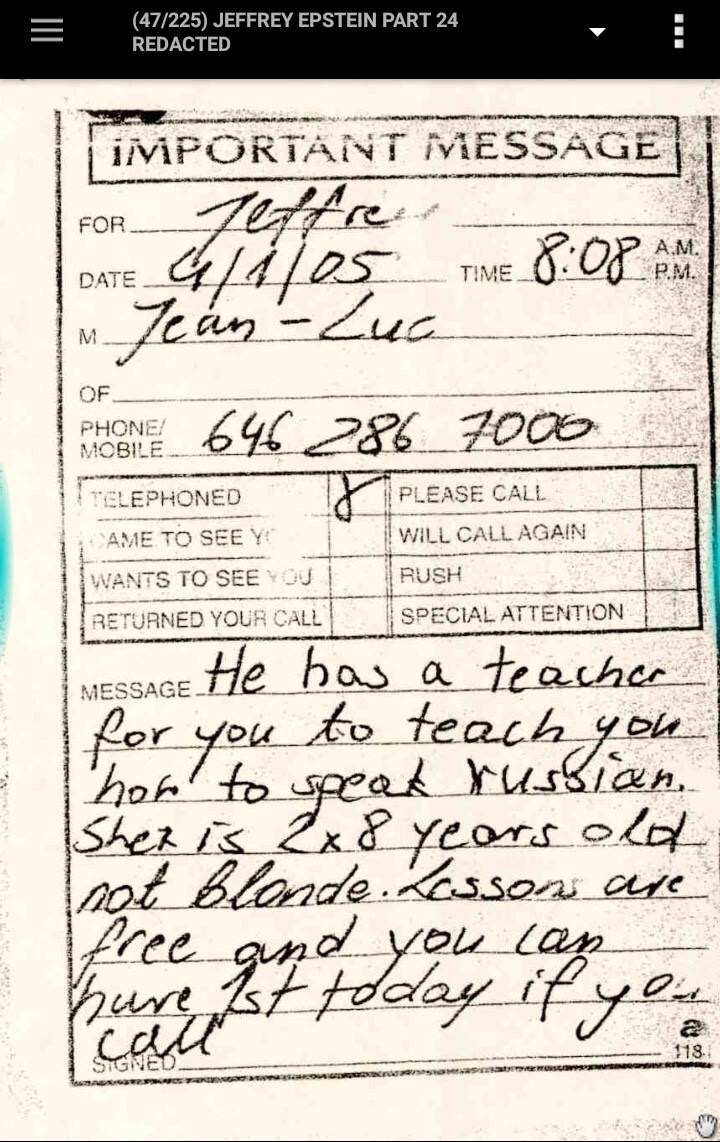 (47/225) JEFFREY EPSTEIN PART 24
REDACTED
IMPORTANT MESSAGE
FOR Jeffre
DATE 4/1/05 TIME 8:08 A.M.
P.M.
M Jean-Luc
OF
PHONE/
MOBILE 646 286 7000
TELEPHONED PLEASE CALL
CAME TO SEE YO WILL CALL AGAIN
WANTS TO SEE YOU RUSH
RETURNED YOUR CALL SPECIAL ATTENTION
MESSAGE He has a teacher
for you to teach you
how to speak russian.
She is 2x8 years old
not blonde. Lessons are
free and you can
have 1st today if you
call
SIGNED 118